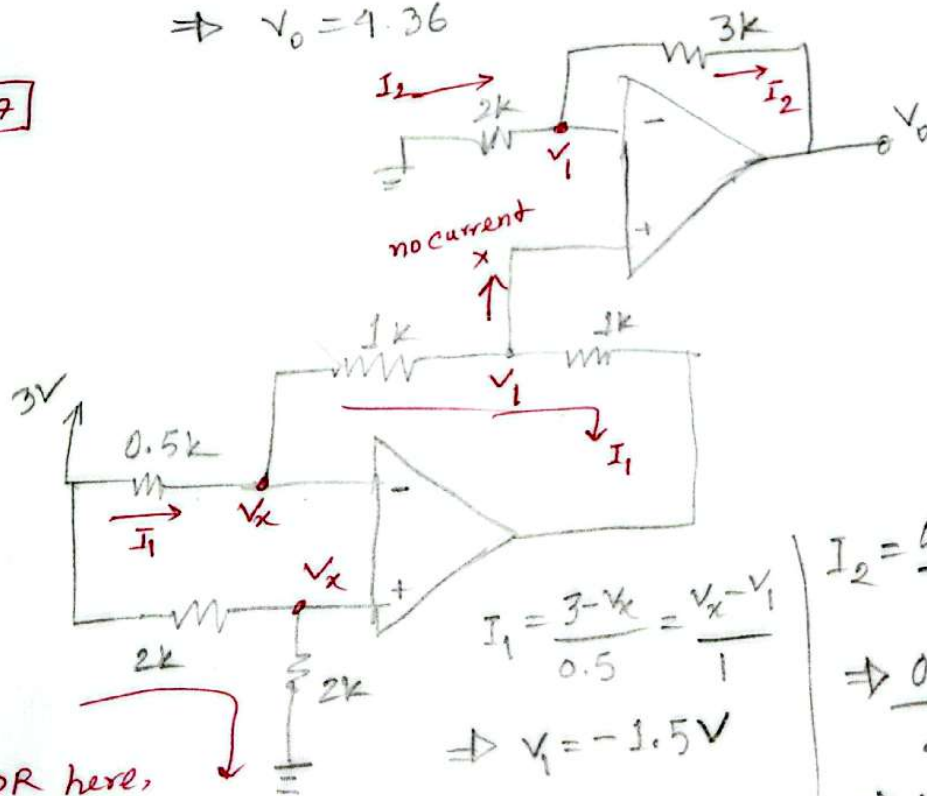 ⇒ V₀ = 4.36
7
3k
I₂
I₂
2k
V₁
−
V₀
no current
x
+
1k
1k
V₁
3V
0.5k
I₁
I₁
Vx
−
Vx
+
2k
2k
I₁ = (3−Vx)/0.5 = (Vx−V₁)/1
⇒ V₁ = −1.5V
I₂ =
⇒ 0
DR here,